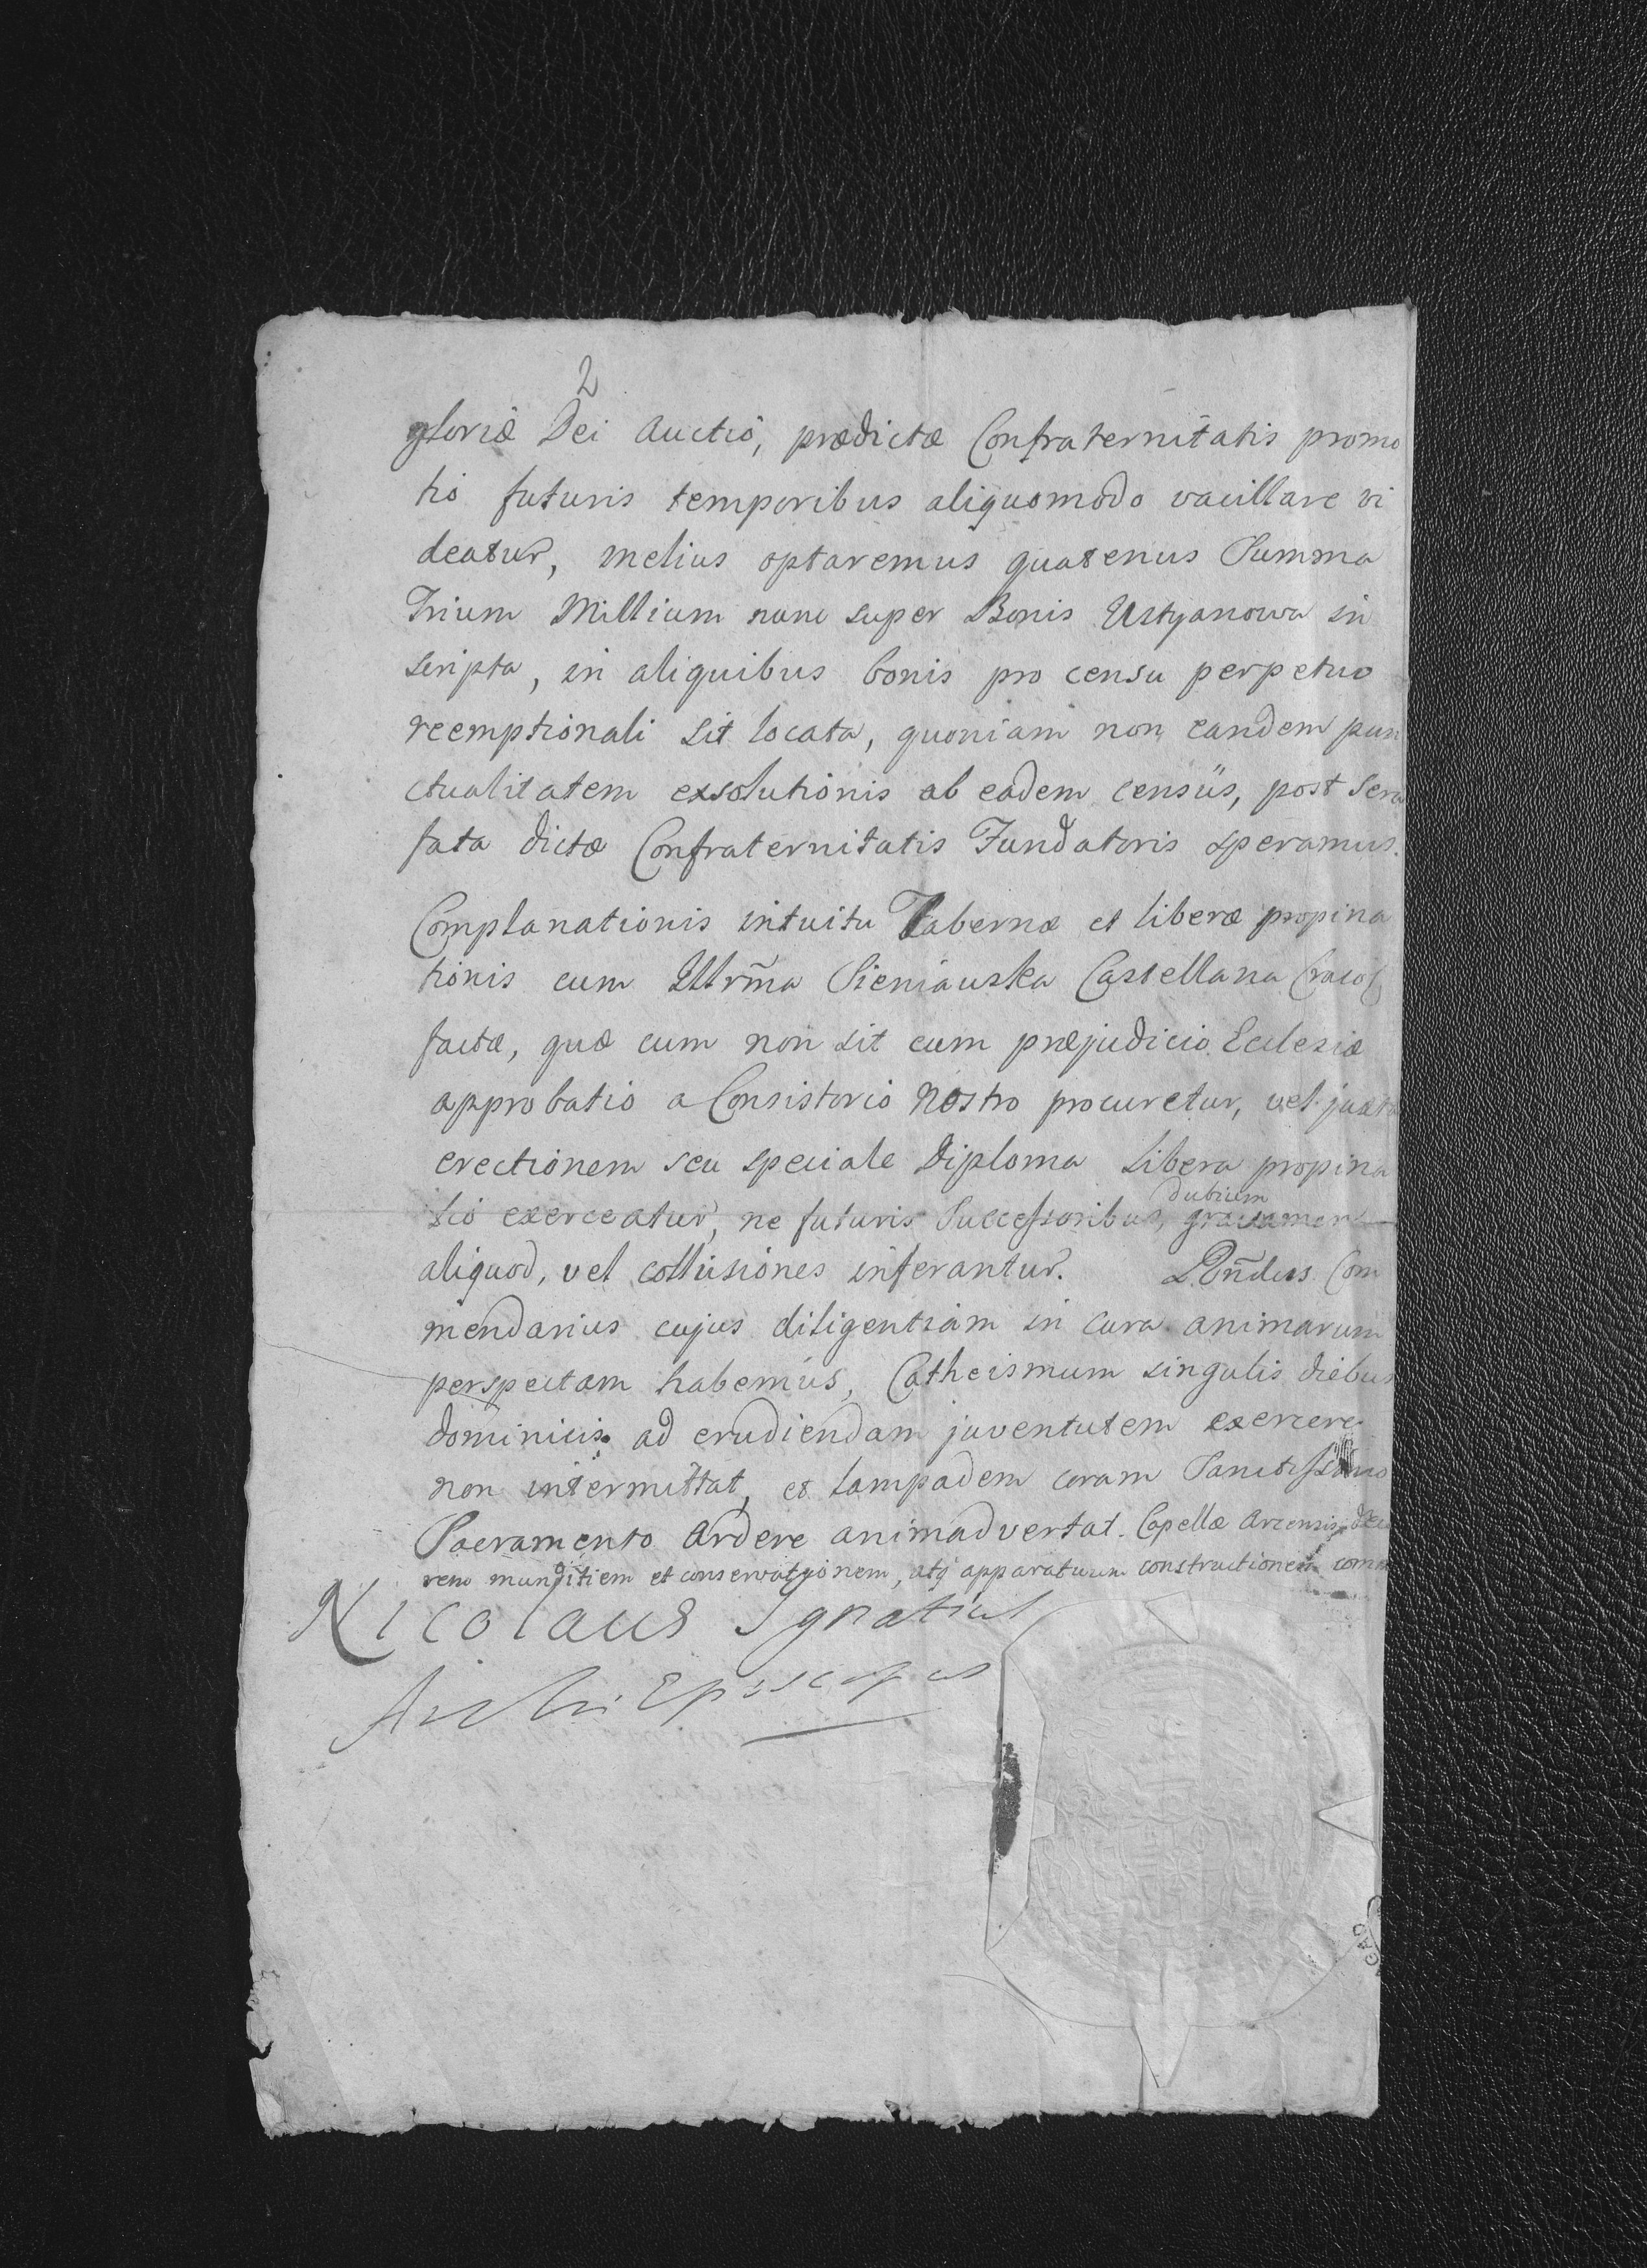 2
gloriæ Dei Auctio, prædictæ Confraternitatis promo
tio futuris temporibus aliquomodo vacillare vi
deatur, melius optaremus quatenus Summa
Trium Millium nunc super Bonis Ustyanowa in
scripta, in aliquibus bonis pro censu perpetuo
reemptionali sit locata, quoniam non eandem pun
ctualitatem exsolutionis ab eadem censûs, post sera
fata dictæ Confraternitatis Fundatoris speramus.
Complanationis intuitu Tabernæ et liberæ propina
tionis cum Illrm̃a Sieniauska Castellana Cracoṽ
factæ, quæ cum non sit cum præjudicio Ecclesiæ
approbatio a Consistorio Nostro procuretur, vel juxta
erectionem seu speciale Diploma libera propina
dubium
tio exerceatur, ne futuris Successoribus, gravamen
aliquod, vel collusiones inferantur. Com
mendarius cujus diligentiam in cura animarum
perspectam habemus, Cathecismum singulis diebus
dominicis ad erudiendam juventutem exercere
non intermittat, et lampadem coram Sanctissimo
Sacramento Ardere animadvertat. Capellæ Arcensis
munditiem et conservationem, atq apparatuum constructionem
Nicolaus Ignatius
ArchiEpiscopus
AGAD